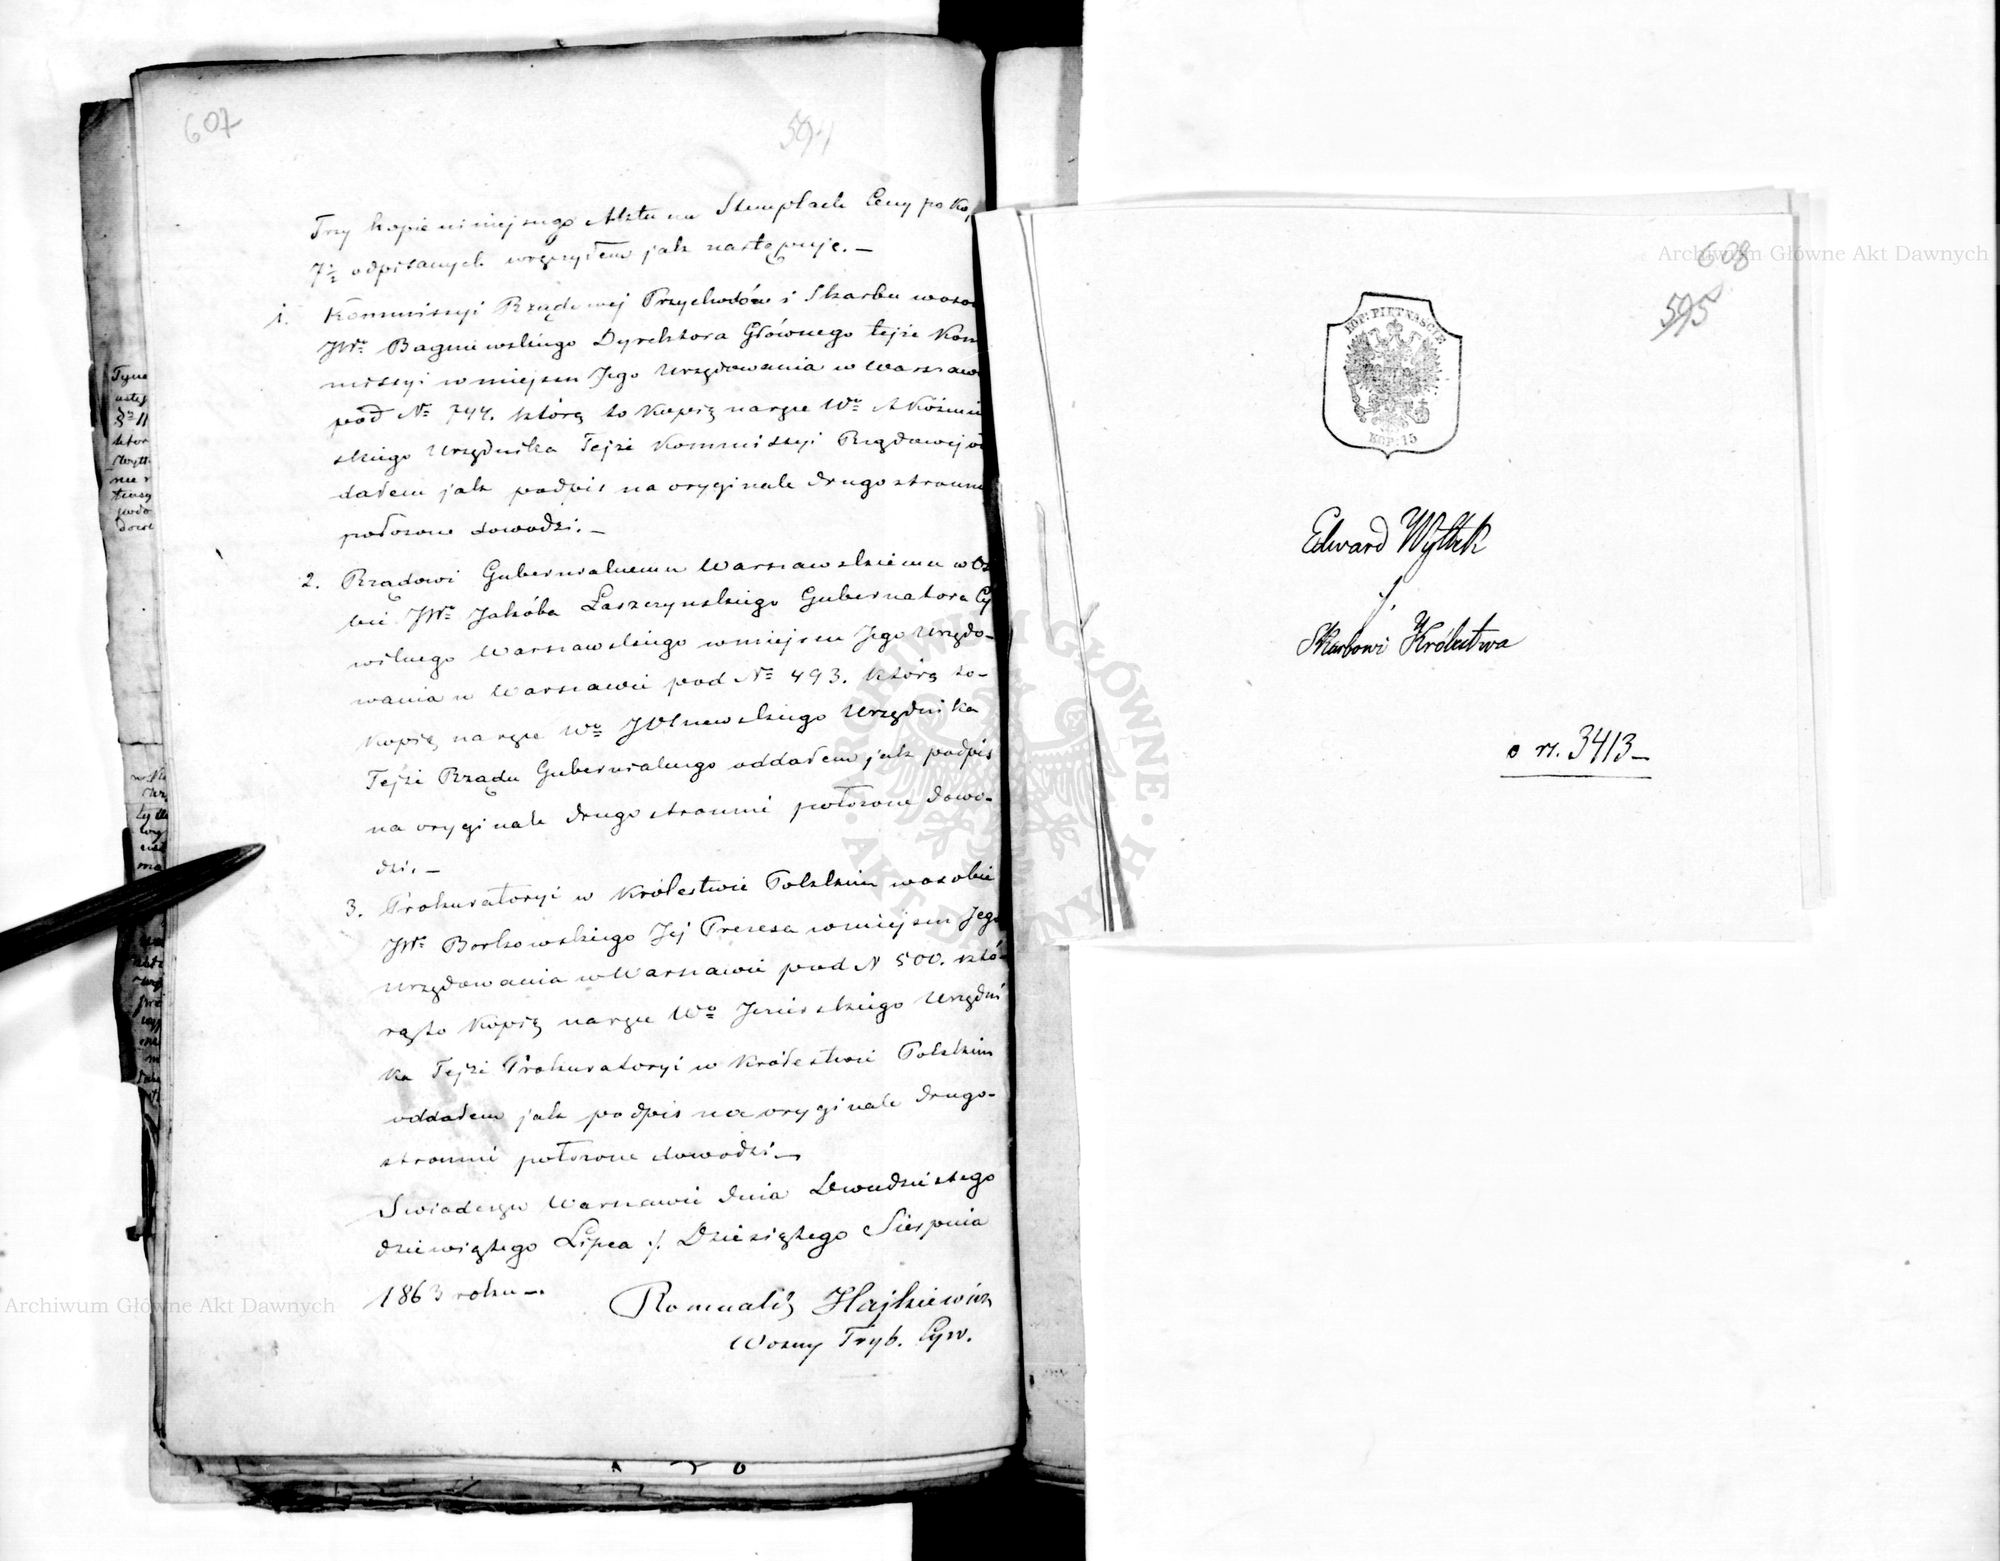 607
594
Trzy kopie niniejszego Aktu na Stemplach Ceny po Ko,
7½ odpisanych wręczyłem jak następuje. —
1. Kommissyi Rządowej Przychodów i Skarbu w oso
JWo Bagniewskiego Dyrektora Głównego tejże Kom
missyi w miejscu Jego Urzędowania w Warszaw
pod No 744. którą to Kopię na ręce Wo A Kozmiń
skiego Urzędnika Tejże Kommissyi Rządowej od
dałem jak podpis na oryginale drugostronnie
położone dowodzi. —
2. Rządowi Gubernialnemu Warszawskiemu w Oso
bie JWo Jakóba Łaszczyńskiego Gubernatora Cy
wilnego Warszawskiego w miejscu Jego Urzędo-
wania w Warszawie pod No 493. którą to-
Kopię na ręce Wo Urzędnika
Tejże Rządu Gubernialnego oddałem jak podpis
na oryginale drugostronnie położone dowo-
dzi. —
3. Prokuratoryi w Królestwie Polskiem w osobie
JWo Borkowskiego Jej Prezesa w miejscu Jego
Urzędowania w Warszawie pod N 500. któ-
rą to Kopię na ręce Wo Urzędni
ka Tejże Prokuratoryi w Królestwie Polskim
oddałem jak podpis na oryginale drugo-
stronnie położone dowodzi. —
Swiadczę w Warszawie dnia Dwudziestego
dziewiątego Lipca /. Dziesiątego Sierpnia
1863 roku —.
Romuald Hajkiewicz
Wozny Tryb. Cyw.
608
595
KOP: PIĘTNAŚCIE
KOP: 15
Edward
/.
Skarbowi Królestwa
o rs. 3413 —
Archiwum Główne Akt Dawnych
Archiwum Główne Akt Dawnych
ARCHIWUM GŁÓWNE AKT DAWNYCH